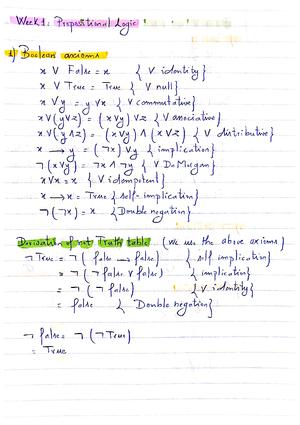 Week 1: Propositional Logic
1) Boolean axioms
x ∨ False = x { ∨ identity}
x ∨ True = True { ∨ null}
x ∨ y = y ∨ x { ∨ commutative}
x ∨ (y ∨ z) = (x ∨ y) ∨ z { ∨ associative}
x ∨ (y ∧ z) = (x ∨ y) ∧ (x ∨ z) { ∨ distributive}
x → y = (¬x) ∨ y { implication}
¬(x ∨ y) = ¬x ∧ ¬y { ∨ De Morgan}
x ∨ x = x { ∨ idompotent}
x → x = True { self-implication}
¬(¬x) = x { Double negation}
Derivation of not Truth table (we use the above axioms)
¬True = ¬(false → false) { self implication}
= ¬(¬false ∨ false) { implication}
= ¬(¬false) { ∨ identity}
= false { Double negation}
¬false = ¬(¬True)
= True